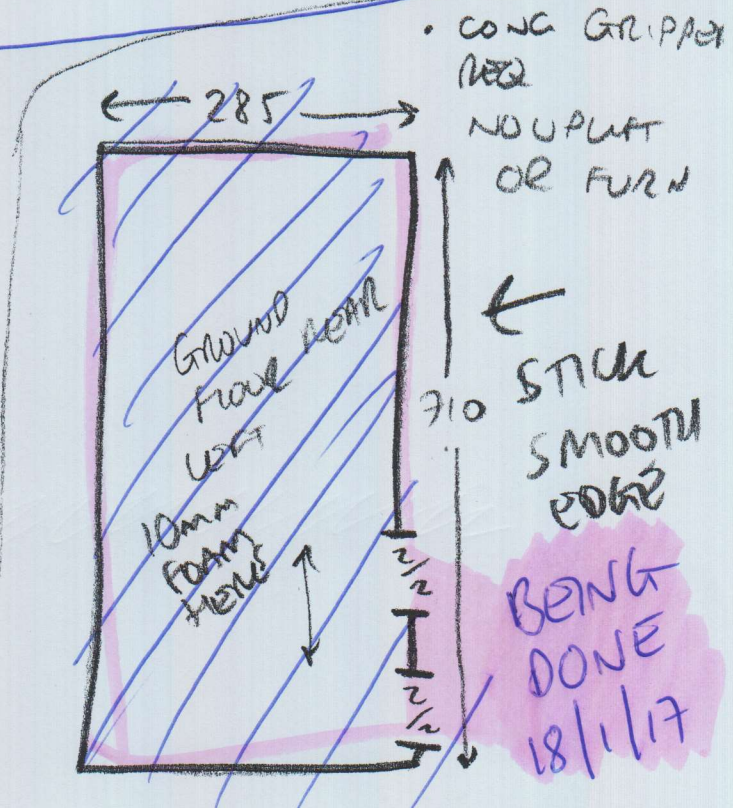 • CONC GRIPPER
REQ
NO UPLIFT
OR FURN
285
GROUND
FLOOR REAR
LEFT
10mm
FOAM
HERE
710
STICK
SMOOTH
EDGE
2/2
2/2
BEING
DONE
18/1/17